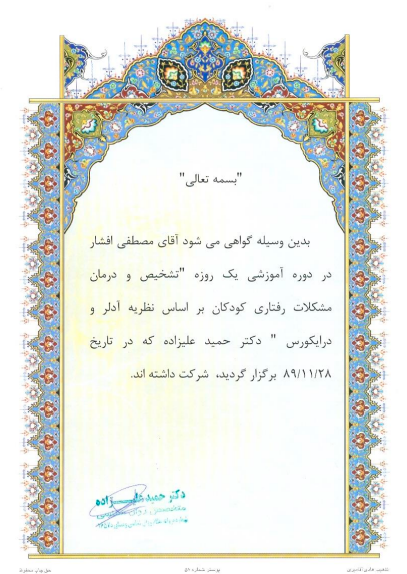 "بسمه تعالی"
بدین وسیله گواهی می شود آقای مصطفی افشار
در دوره آموزشی یک روزه "تشخیص و درمان
مشکلات رفتاری کودکان بر اساس نظریه آدلر و
درایکورس " دکتر حمید علیزاده که در تاریخ
۸۹/۱۱/۲۸ برگزار گردید، شرکت داشته اند.
دکتر حمید علیزاده
تذهیب هادی آقامیری
پوستر شماره ۵۱
حق چاپ محفوظ